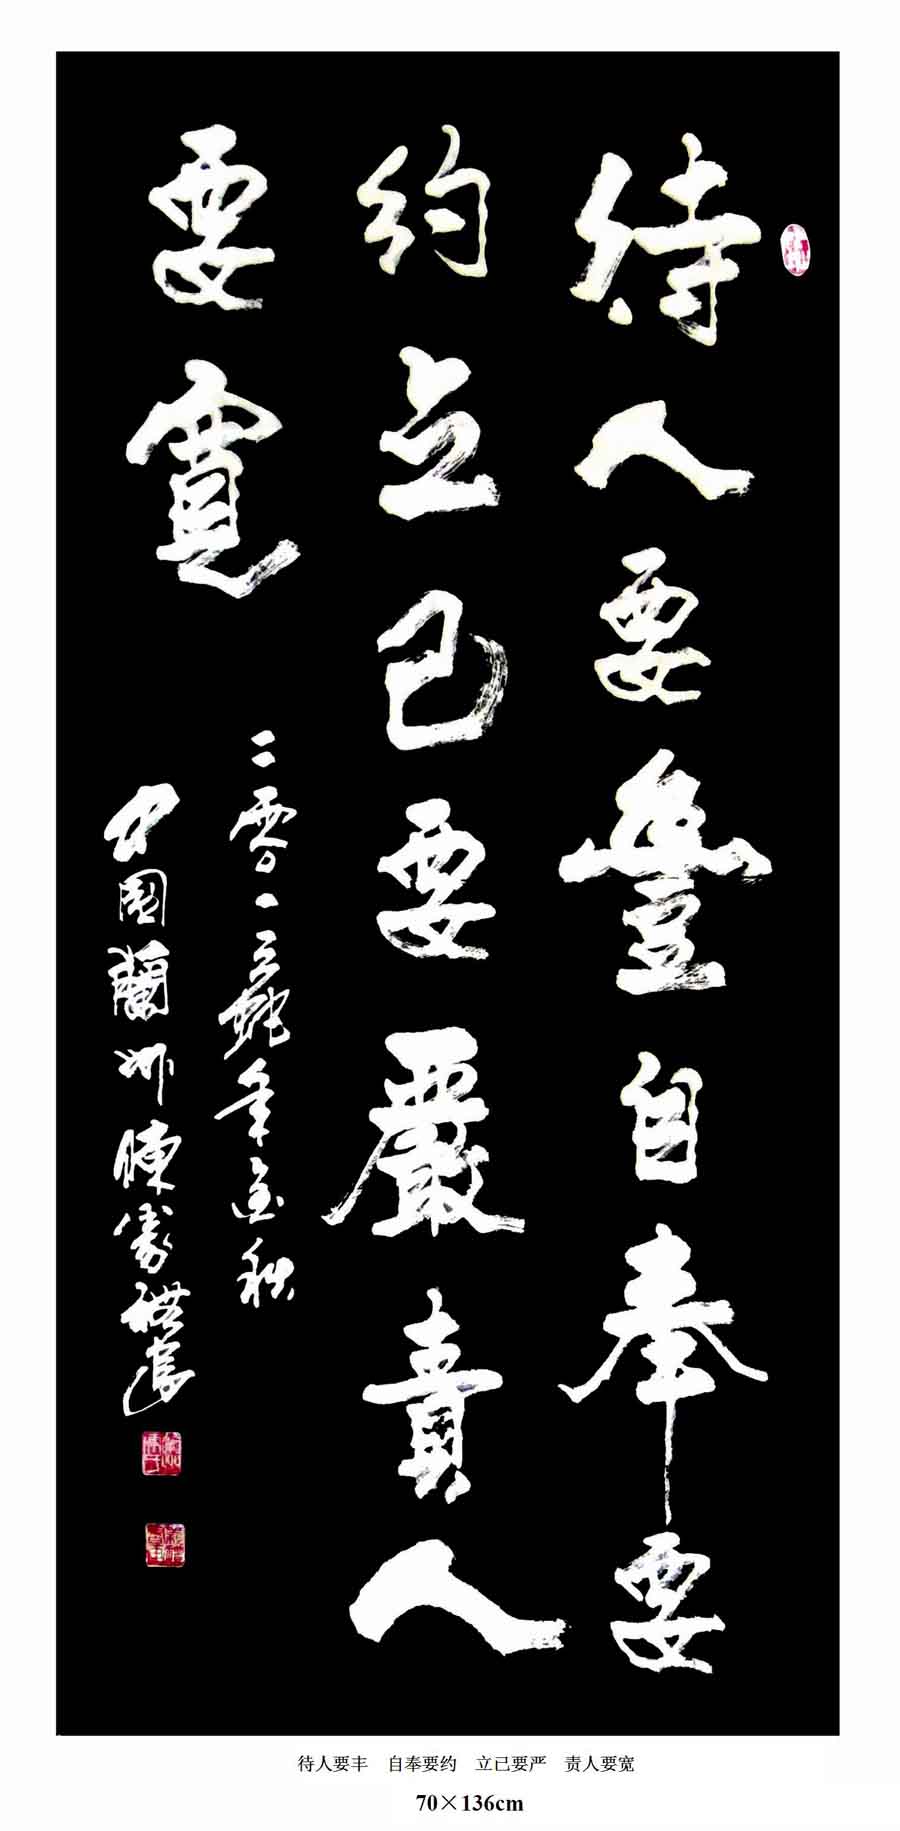 待人要豐自奉要
約立已要嚴責人
要寬
二零一三蛇年金秋
中國蘭州陳
待人要丰 自奉要约 立已要严 责人要宽
70×136cm